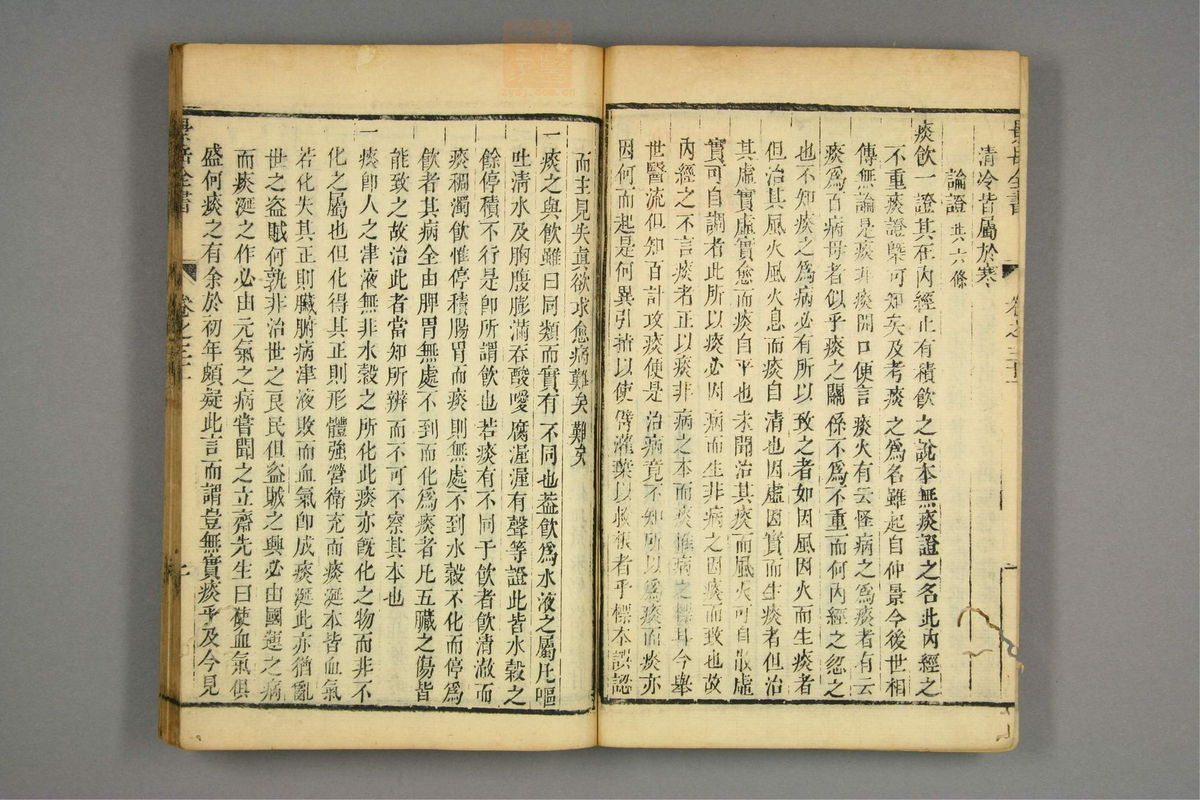 清冷皆屬於寒
論證 共六條
痰飲一證其在內經止有積飲之說本無痰證之名此內經之
不重痰證槩可知矣及考痰之爲名雖起自仲景今後世相
傳無論是痰非痰開口便言痰火有云怪病之爲痰者有云
痰爲百病母者似乎痰之關係不爲不重而何內經之忽之
也不知痰之爲病必有所以致之者如因風因火而生痰者
但治其風火風火息而痰自清也因虛因實而生痰者但治
其虛實虛實愈而痰自平也未聞治其痰而風火可自散虛
實可自調者此所以痰必因病而生非病之因痰而致也故
內經之不言痰者正以痰非病之本而痰惟病之標耳今舉
世醫流但知百計攻痰便是治病竟不知所以爲痰而痰亦
因何而起是何異引指以使臂灌葉以救根者乎標本誤認
而主見失眞欲求愈病難矣難矣
一痰之與飲雖曰同類而實有不同也葢飲爲水液之屬凡嘔
吐清水及胸腹膨滿吞酸噯腐渥渥有聲等證此皆水穀之
餘停積不行是卽所謂飲也若痰有不同于飲者飲清澈而
痰稠濁飲惟停積腸胃而痰則無處不到水穀不化而停爲
飲者其病全由脾胃無處不到而化爲痰者凡五臟之傷皆
能致之故治此者當知所辨而不可不察其本也
一痰卽人之津液無非水穀之所化此痰亦旣化之物而非不
化之屬也但化得其正則形體強營衛充而痰涎本皆血氣
若化失其正則臟腑病津液敗而血氣卽成痰涎此亦猶亂
世之盜賊何孰非治世之良民但盜賊之興必由國運之病
而痰涎之作必由元氣之病嘗聞之立齋先生曰使血氣俱
盛何痰之有余於初年頗疑此言而謂豈無實痰乎及今見
景岳全書
卷之三十一
一